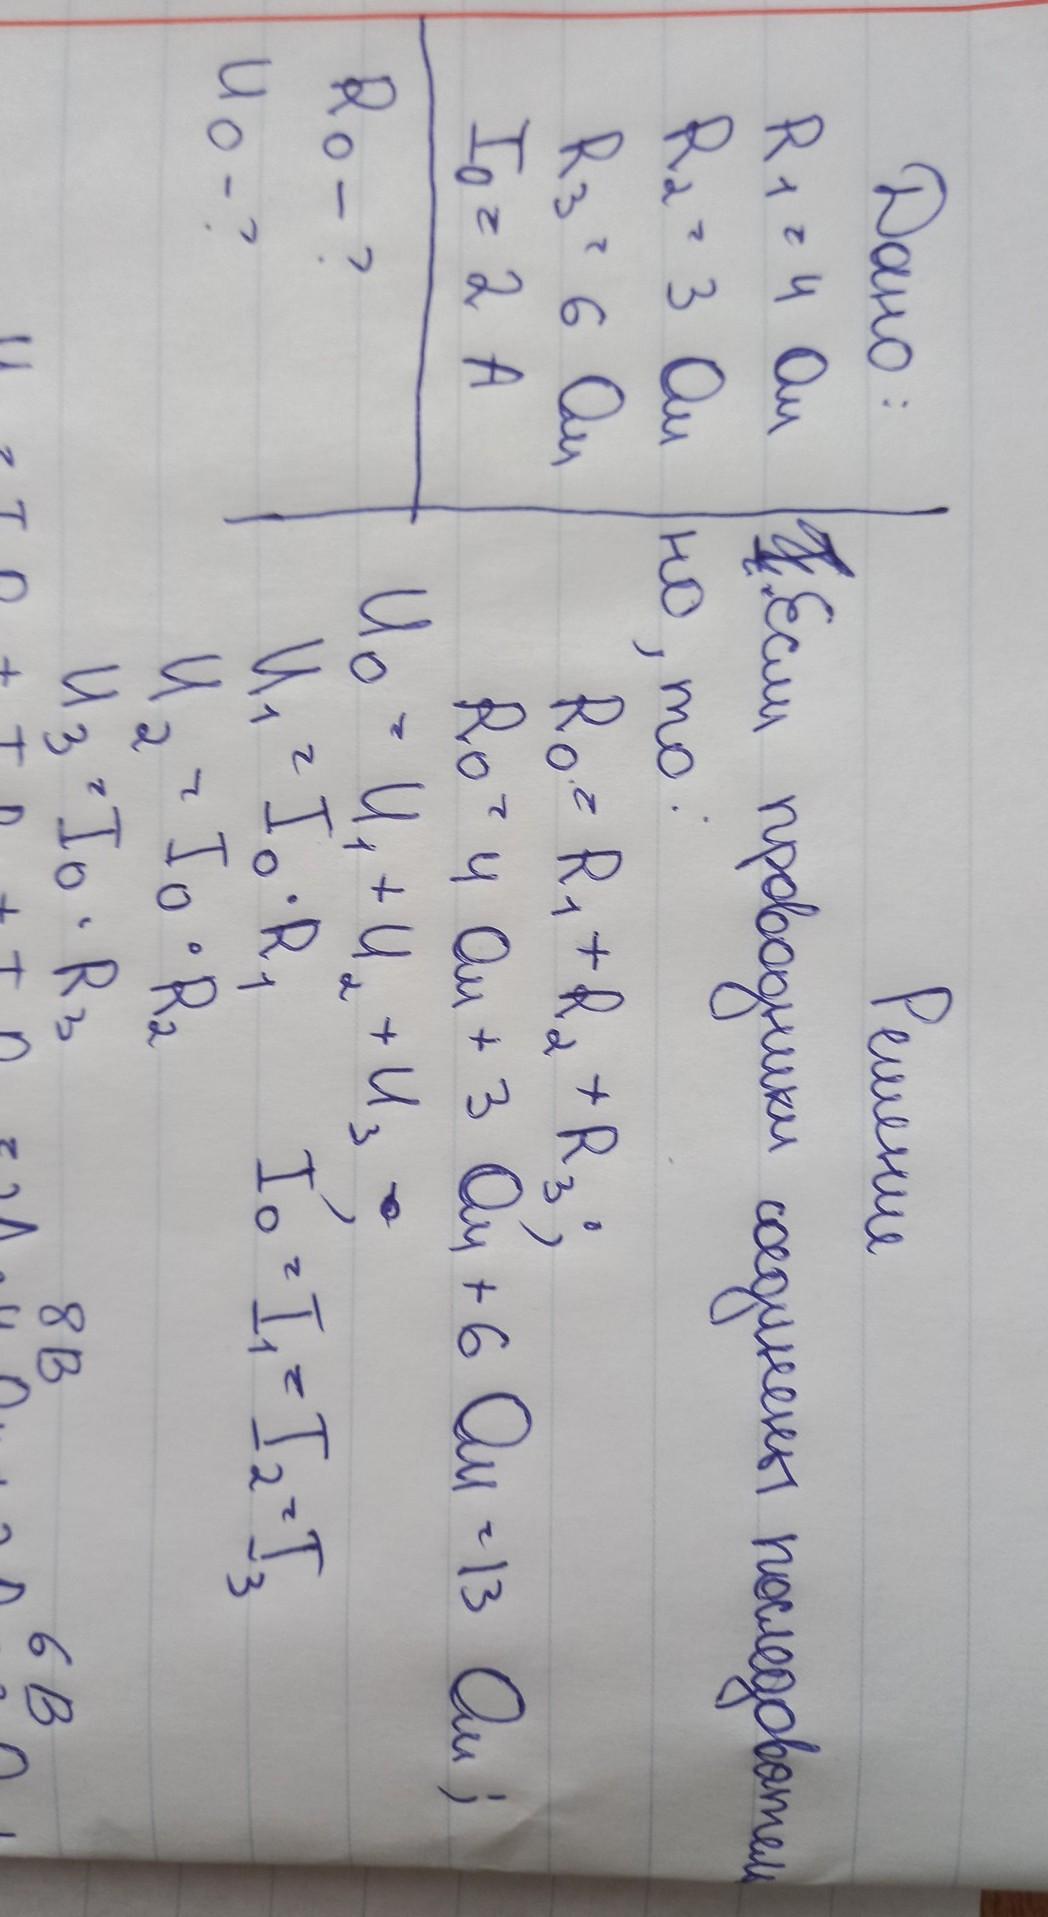 Дано:
R1 = 4 Ом
R2 = 3 Ом
R3 = 6 Ом
I0 = 2 А
R0 - ?
U0 - ?
Решение
Если проводники соединены последователь
но, то:
R0 = R1 + R2 + R3;
R0 = 4 Ом + 3 Ом + 6 Ом = 13 Ом;
U0 = U1 + U2 + U3;
U1 = I0 · R1 I0 = I1 = I2 = I3
U2 = I0 · R2
U3 = I0 · R3
8В 6В